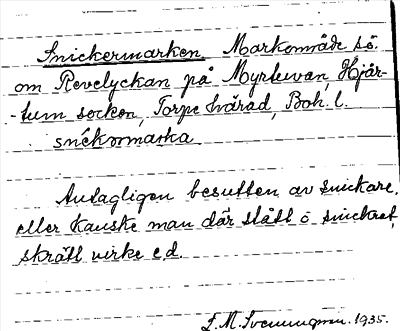 Snickermarken, Markområde sö.
om Revelyckan på Myrhuvan, Hjär-
-tum socken, Torpe härad, Boh. l.
snékormarka
Antagligen besutten av snickare,
eller kanske man där stått o snickrat,
skrätt virke e d.
E. M. Svenungsson. 1935.